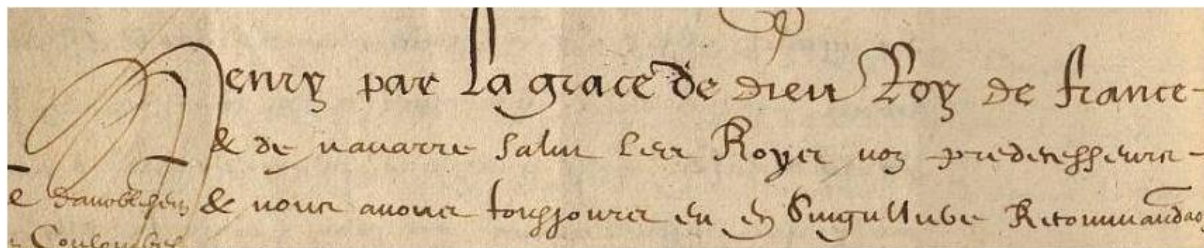 Henry par la grace de dieu Roy de france
& de navarre salut les Royes noz predecesseurs
& nous avons tousjours eu en singulliere Recommandao
Coulombes